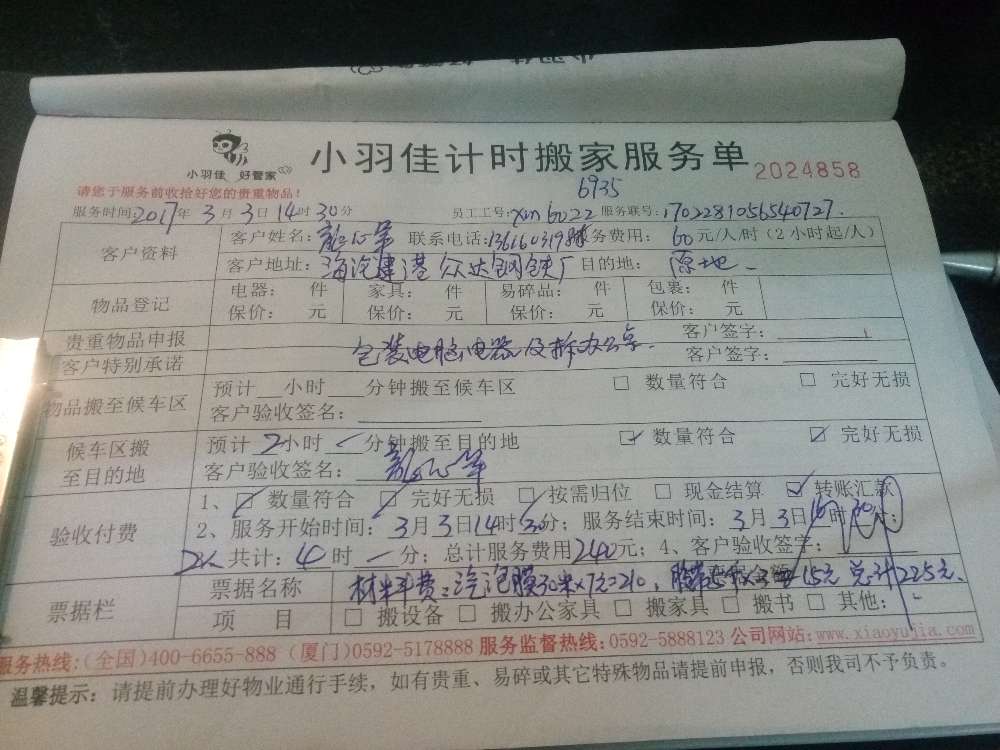 小羽佳 好管家
小羽佳计时搬家服务单 2024858
请您于服务前收拾好您的贵重物品!
6935
服务时间:2017年3月3日14时30分 员工工号: 6022 服务联号:1702281056540727.
客户资料 客户姓名: 联系电话: 服务费用:60元/人/时(2小时起/人)
客户地址: 众达钢铁厂 目的地:原地
物品登记 电器: 件 家具: 件 易碎品: 件 包裹: 件
保价: 元 保价: 元 保价: 元 保价: 元
贵重物品申报 客户签字:
包装电脑电器及拆办公桌.
客户特别承诺 客户签字:
物品搬至候车区 预计 小时 分钟搬至候车区 □ 数量符合 □ 完好无损
客户验收签名:
候车区搬至目的地 预计2小时 分钟搬至目的地 ☑ 数量符合 ☑ 完好无损
客户验收签名:
验收付费 1、☑ 数量符合 ☑ 完好无损 ☑ 按需归位 □ 现金结算 ☑ 转账汇款
2、服务开始时间:3月3日14时30分;服务结束时间:3月3日16时30分;
2人 共计:4时 分;总计服务费用240元;4、客户验收签字:
票据栏 票据名称 材料费:汽泡膜30米×7元=210, 15元 共计225元.
项 目 □ 搬设备 □ 搬办公家具 □ 搬家具 □ 搬书 □ 其他:
服务热线:(全国)400-6655-888 (厦门)0592-5178888 服务监督热线:0592-5888123 公司网站:www.xiaoyujia.com
温馨提示:请提前办理好物业通行手续,如有贵重、易碎或其它特殊物品请提前申报,否则我司不予负责。